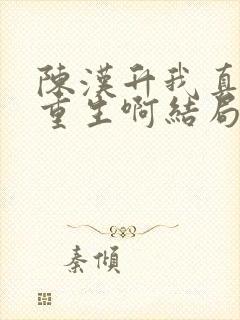 陳漢升我真
重生啊結局
秦傾